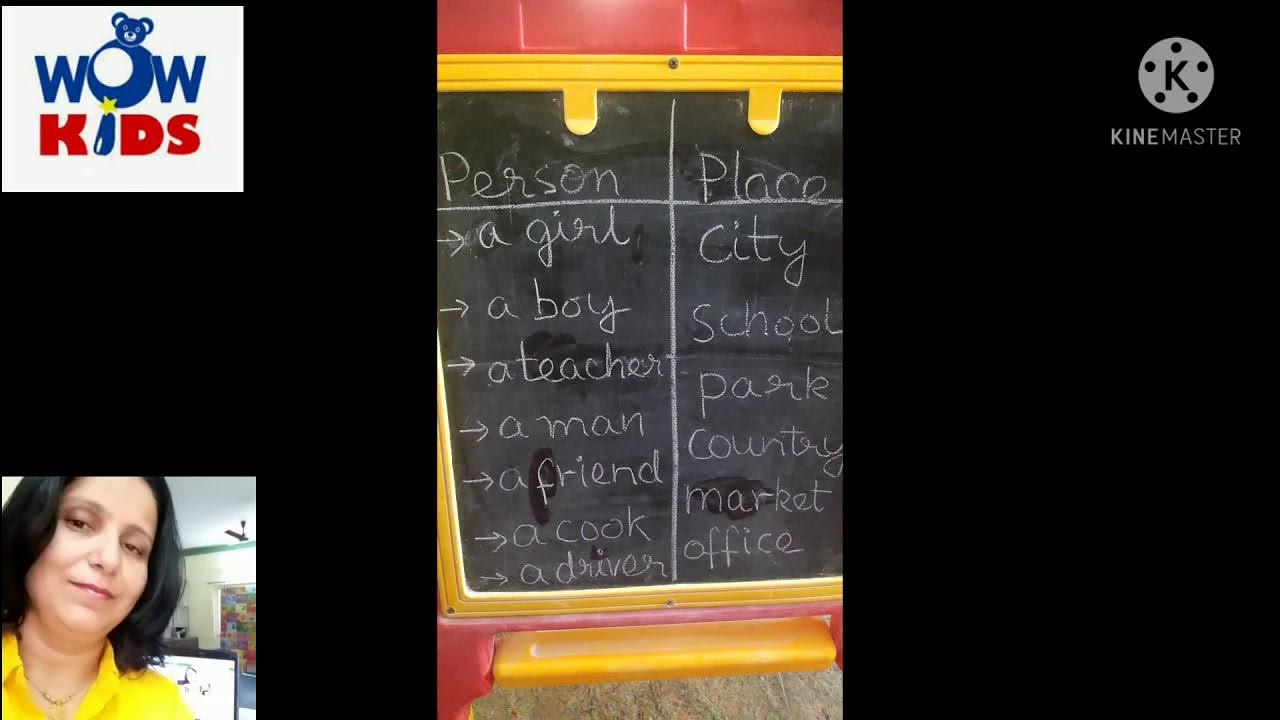 WOW
KIDS
KINEMASTER
Person Place
→ a girl City
→ a boy School
→ a teacher park
→ a man country
→ a friend market
→ a cook office
→ a driver